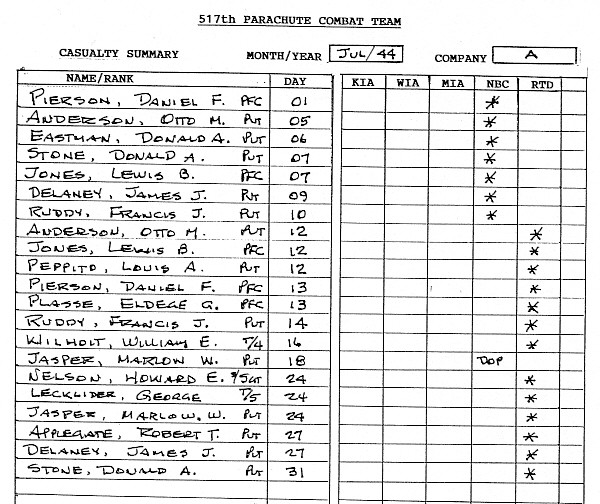 517th PARACHUTE COMBAT TEAM
CASUALTY SUMMARY MONTH/YEAR JUL/44 COMPANY A
NAME/RANK DAY KIA WIA MIA NBC RTD
PIERSON, DANIEL F. PFC 01 *
ANDERSON, OTTO M. PVT 05 *
EASTMAN, DONALD A. PVT 06 *
STONE, DONALD A. PVT 07 *
JONES, LEWIS B. PFC 07 *
DELANEY, JAMES J. PVT 09 *
RUDDY, FRANCIS J. PVT 10 *
ANDERSON, OTTO M. PVT 12 *
JONES, LEWIS B. PFC 12 *
PEPPITO, LOUIS A. PVT 12 *
PIERSON, DANIEL F. PFC 13 *
PLASSE, ELDEGE G. PFC 13 *
RUDDY, FRANCIS J. PVT 14 *
WILHOIT, WILLIAM E. T/4 16 *
JASPER, MARLOW W. PVT 18 DOP
NELSON, HOWARD E. S/SGT 24 *
LECKLIDER, GEORGE T/5 24 *
JASPER, MARLOW. W. PVT 24 *
APPLEGATE, ROBERT T. PVT 27 *
DELANEY, JAMES J. PVT 27 *
STONE, DONALD A. PVT 31 *